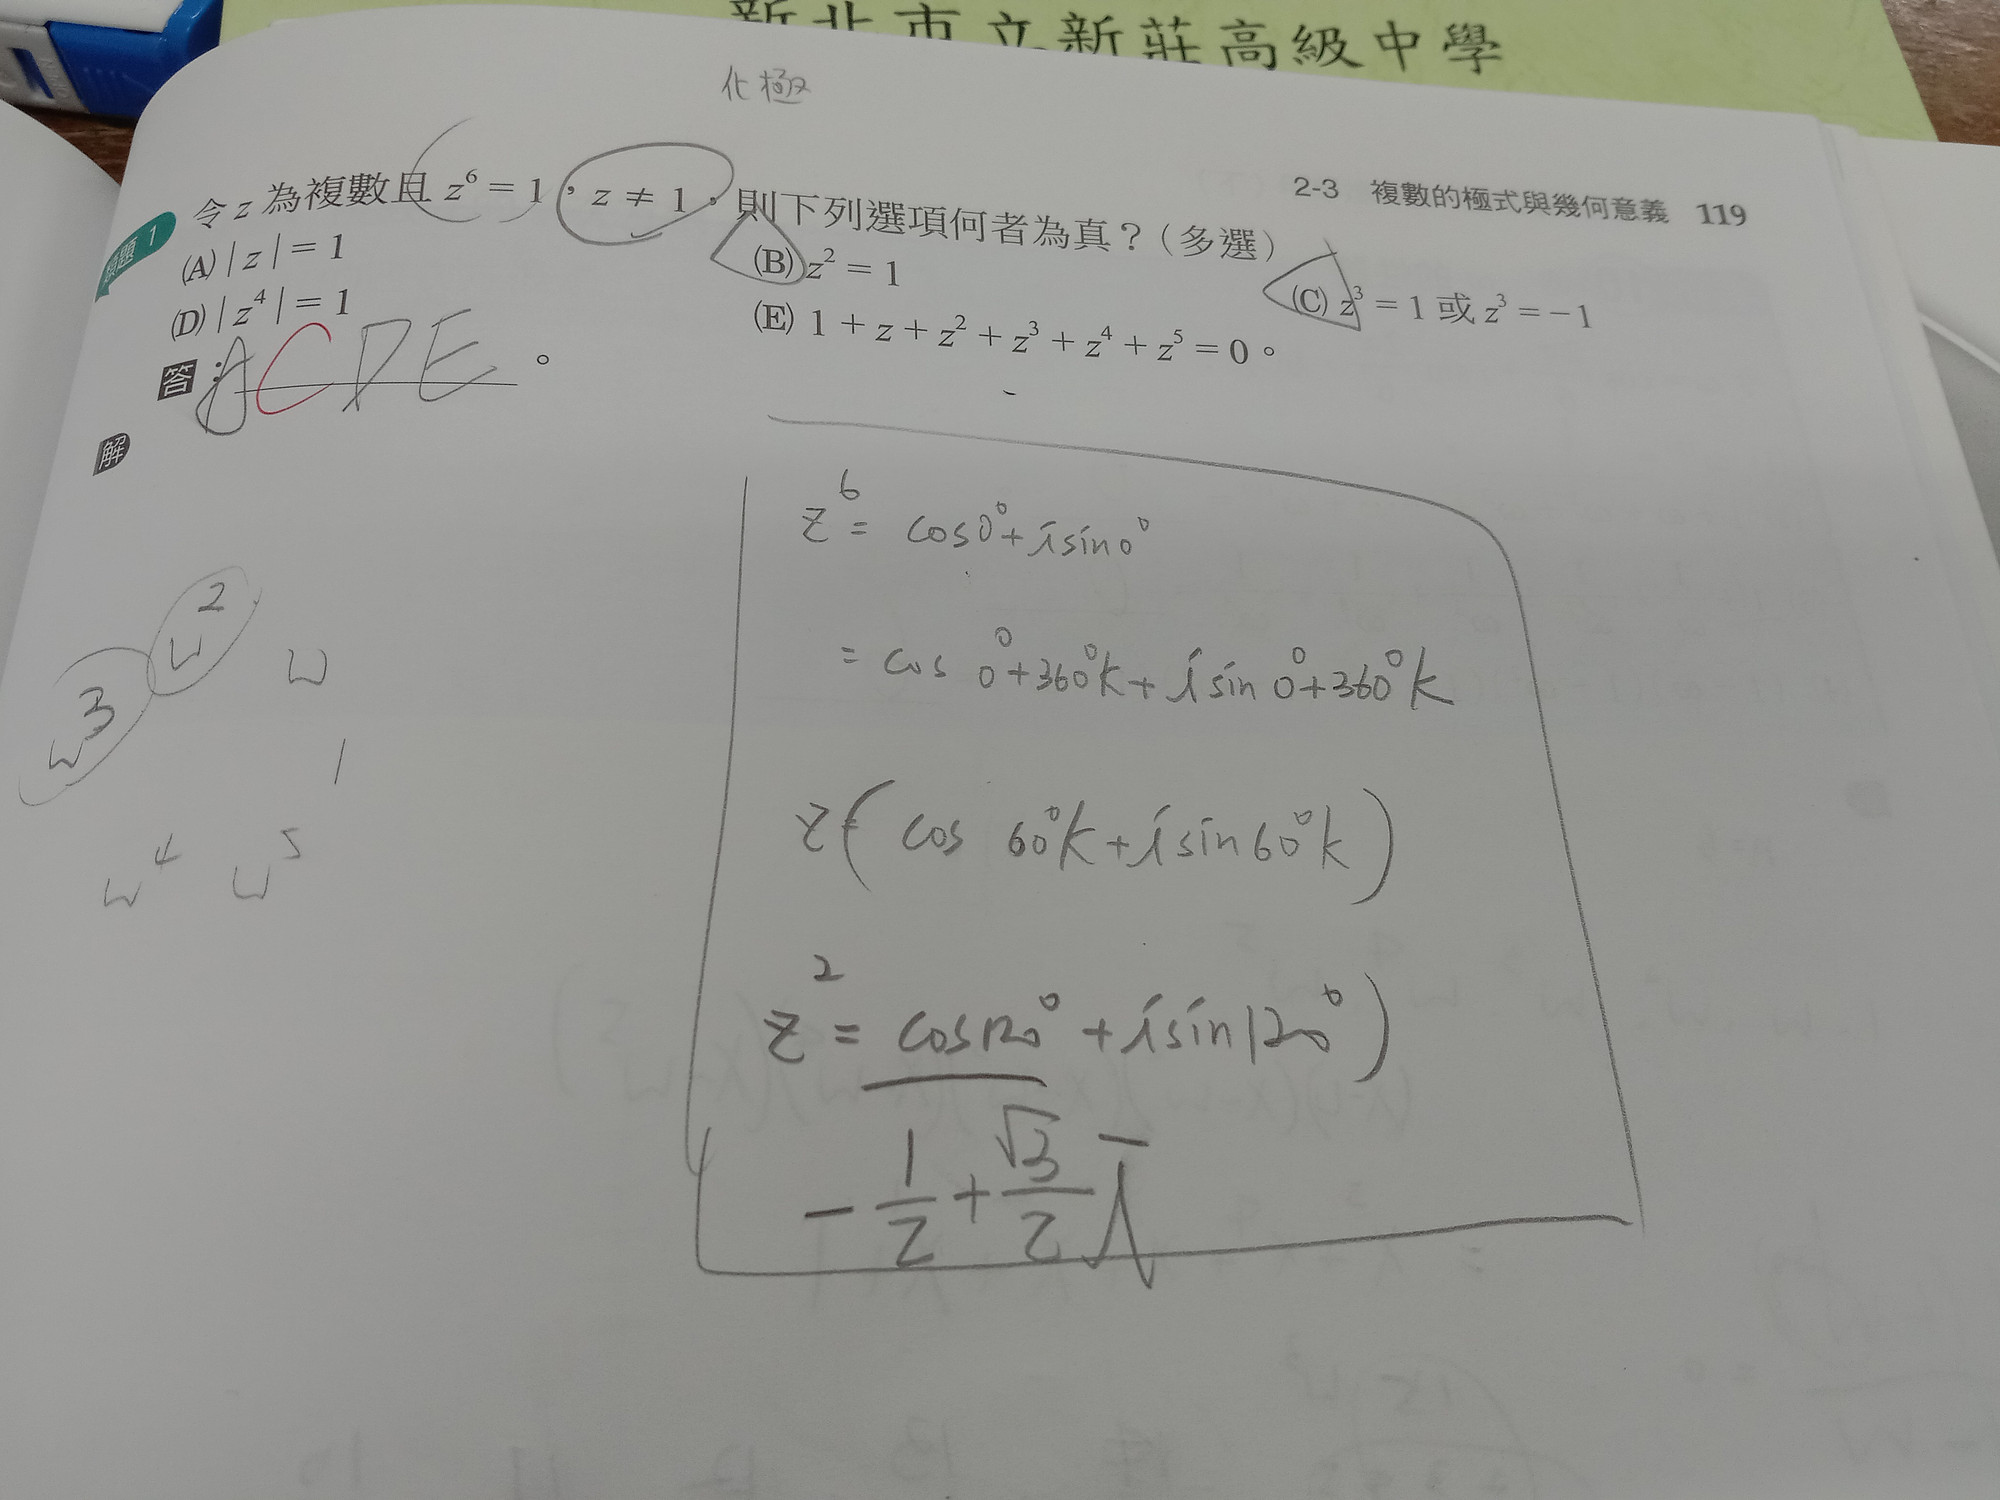 新北市立新莊高級中學
化極
2-3 複數的極式與幾何意義 119
類題 1 令 z 為複數且 z⁶ = 1，z ≠ 1，則下列選項何者為真？（多選）
(A) | z | = 1 (B) z² = 1 (C) z³ = 1 或 z³ = −1
(D) | z⁴ | = 1 (E) 1 + z + z² + z³ + z⁴ + z⁵ = 0。
答：ACDE。
解
z⁶ = cos0° + i sin0°
= cos 0° + 360°k + i sin 0° + 360°k
z = ( cos 60°k + i sin60°k )
z² = cos120° + i sin120° )
− 1/2 + √3/2 i
w³ w² w
1
w⁴ w⁵